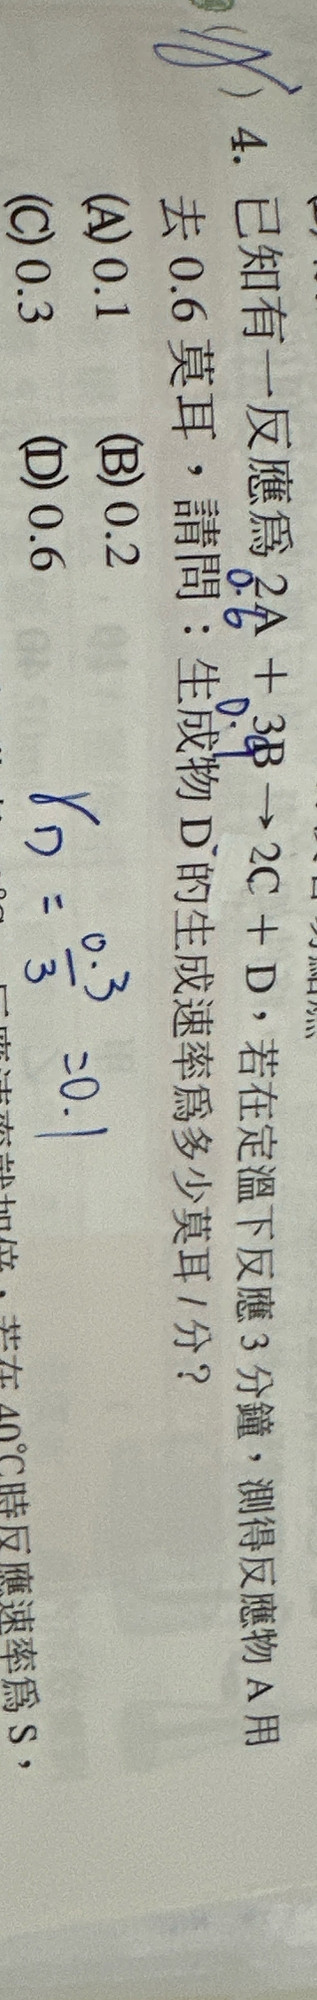 4. 已知有一反應為 2A + 3B → 2C + D，若在定溫下反應 3 分鐘，測得反應物 A 用
0.6
去 0.6 莫耳，請問：生成物 D 的生成速率為多少莫耳 / 分？
(A) 0.1 (B) 0.2
(C) 0.3 (D) 0.6
γD = 0.3/3 = 0.1
若在 40℃時反應速率為 S，